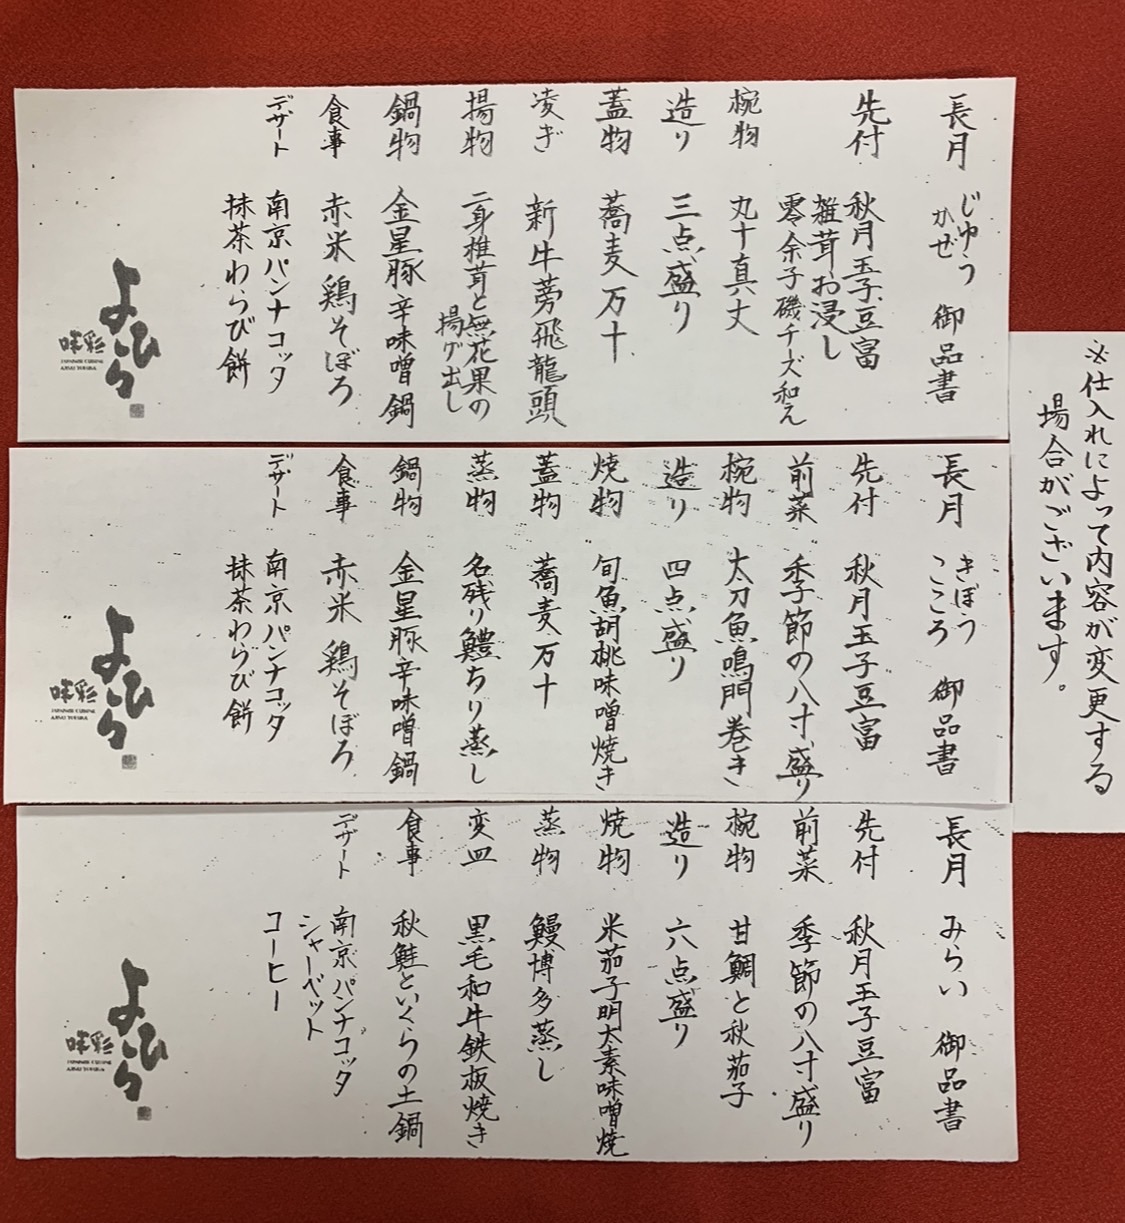 長月 じゆう かぜ 御品書
先付 秋月玉子豆富
雑茸お浸し
零余子磯チーズ和え
椀物 丸十真丈
造り 三点盛り
蓋物 蕎麦万十
凌ぎ 新牛蒡飛龍頭
揚物 二身椎茸と無花果の
揚げ出し
鍋物 金星豚辛味噌鍋
食事 赤米 鶏そぼろ
デザート 南京パンナコッタ
抹茶わらび餅
よひら
彩和
JAPANESE CUISINE
長月 きぼう こころ 御品書
先付 秋月玉子豆富
前菜 季節の八寸盛り
椀物 太刀魚鳴門巻き
造り 四点盛り
焼物 旬魚胡桃味噌焼き
蓋物 蕎麦万十
蒸物 名残り鱧ちり蒸し
鍋物 金星豚辛味噌鍋
食事 赤米 鶏そぼろ
デザート 南京パンナコッタ
抹茶わらび餅
よひら
彩和
JAPANESE CUISINE
長月 みらい 御品書
先付 秋月玉子豆富
前菜 季節の八寸盛り
椀物 甘鯛と秋茄子
造り 六点盛り
焼物 米茄子明太素味噌焼
蒸物 鰻博多蒸し
変皿 黒毛和牛鉄板焼き
食事 秋鮭といくらの土鍋
デザート 南京パンナコッタ
シャーベット
コーヒー
よひら
彩和
JAPANESE CUISINE
※仕入れによって内容が変更する
場合がございます。